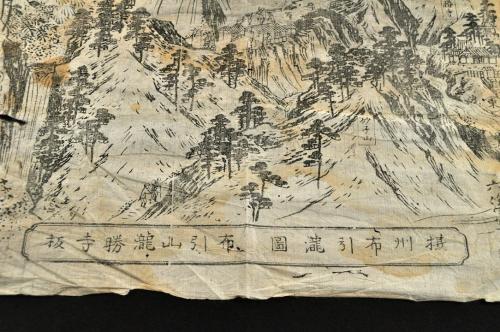 摂州布引瀧圖 布引山瀧勝寺板